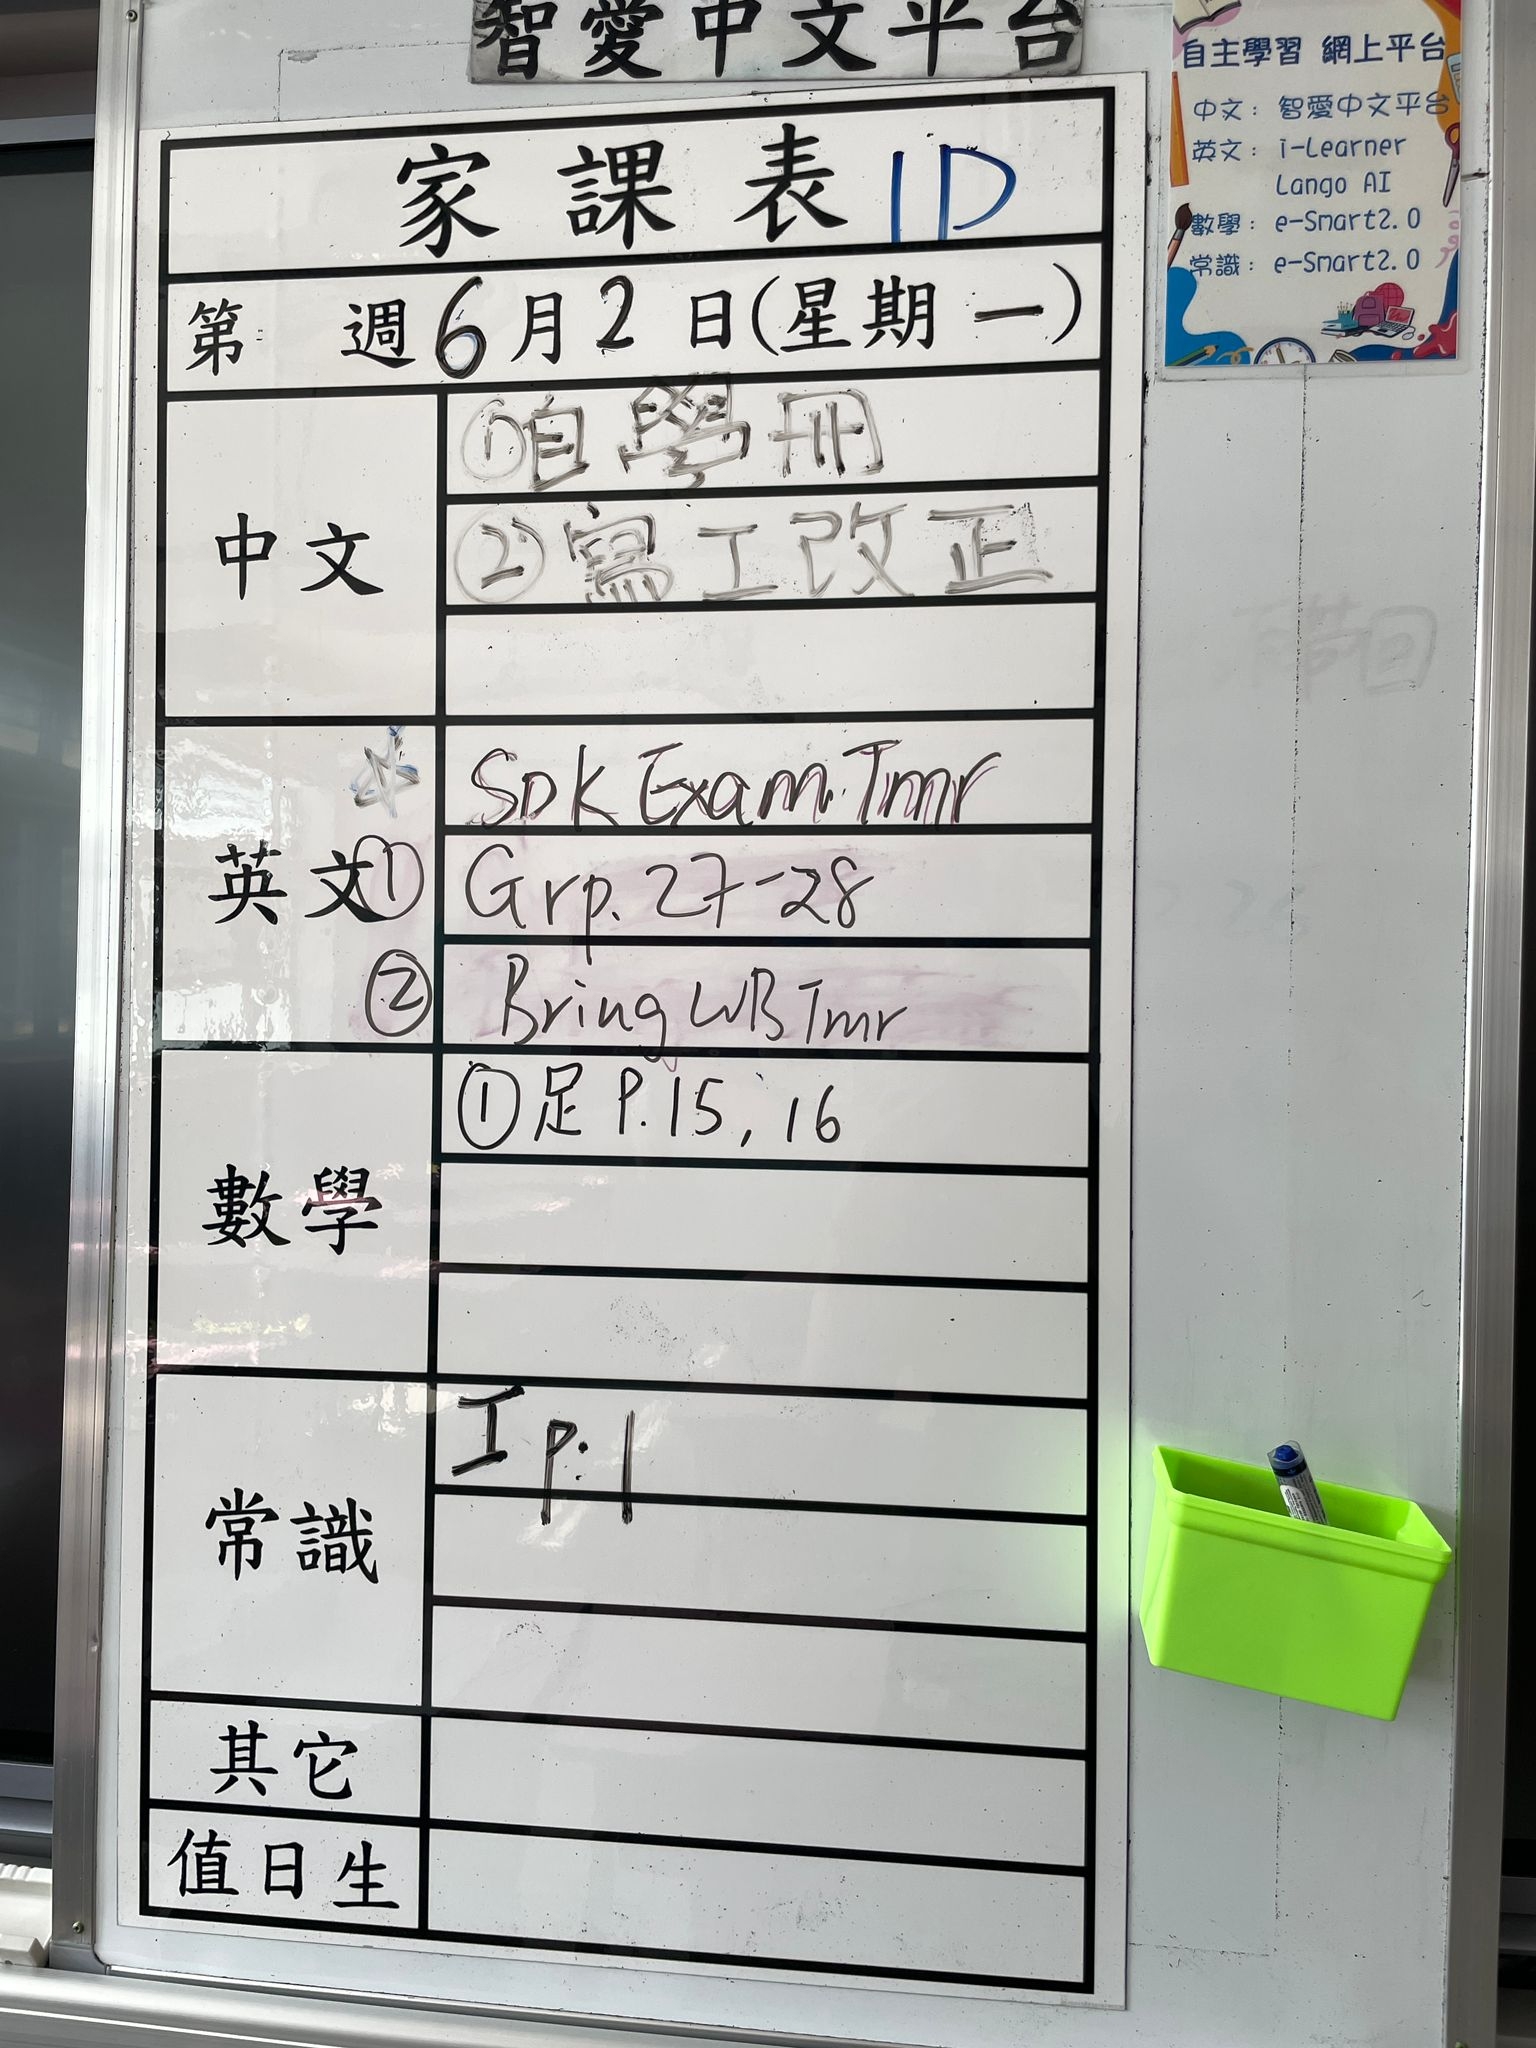 智愛中文平台
自主學習 網上平台
中文：智愛中文平台
英文：i-Learner
Lango AI
數學：e-Smart2.0
常識：e-Smart2.0
家課表 1D
第 週 6月2日(星期一)
中文
①自學冊
②寫工改正
英文
☆ SpK Exam Tmr
① Grp. 27-28
② Bring WB Tmr
數學
①足 P.15, 16
常識
工 p.1
其它
值日生
帶回